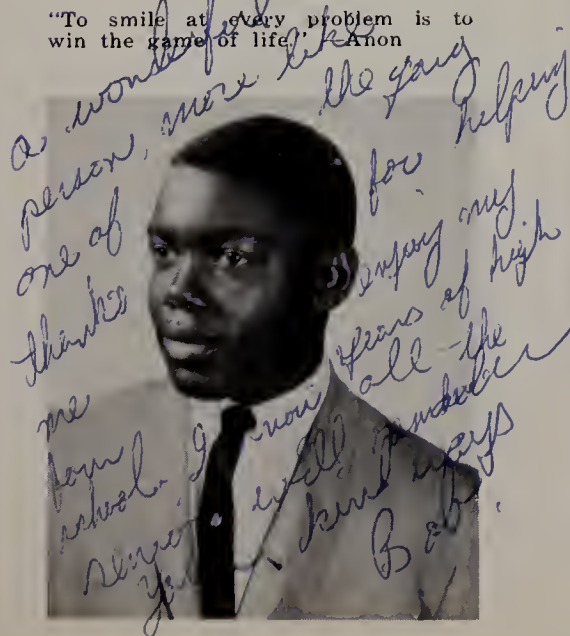 “To smile at every problem is to
win the game of life.” — Anon
a wonderful
person, more like
one of the gang
thanks for helping
me enjoy my
four years of high
school. I know all the
will
your kind ways